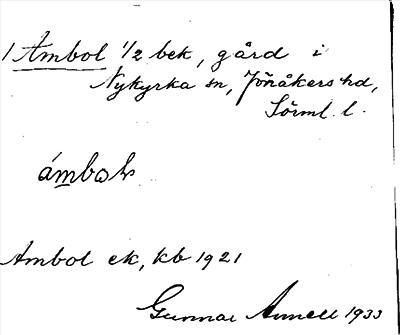 1 Ambol 1/2 bek, gård i
Nykyrka sn, Jönåkers hd,
Sörml. l.
ámbοlν
Ambol ek, kb 1921
Gunnar Annell 1933